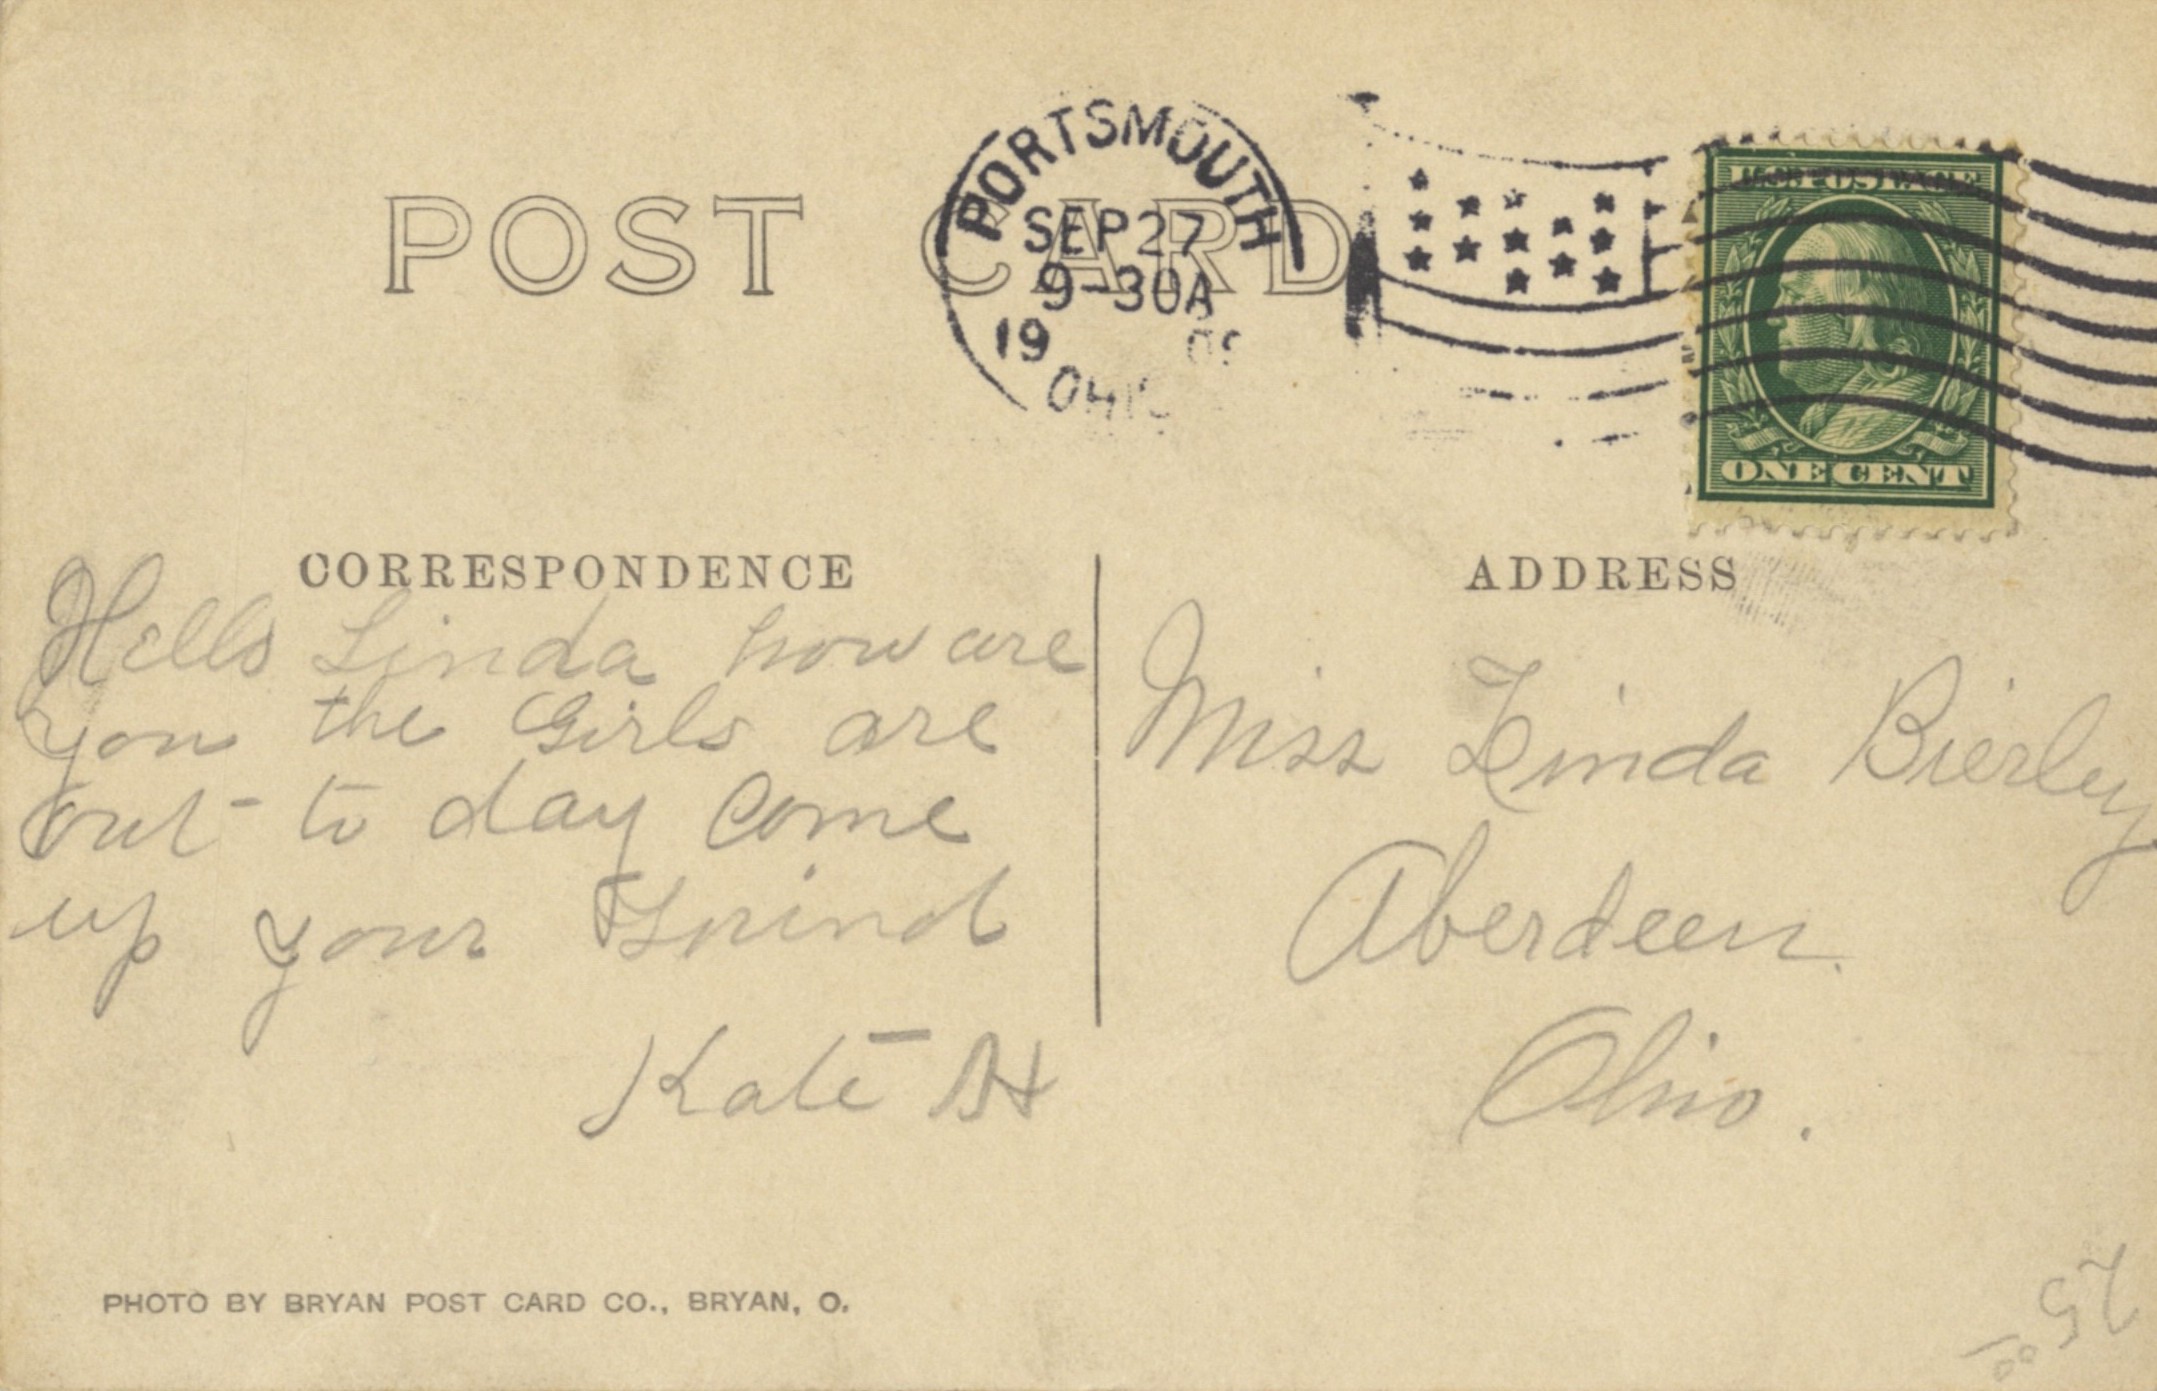 POST CARD
PORTSMOUTH
SEP 27
9-30A
19 09
OHIO
U.S. POSTAGE
ONE CENT
CORRESPONDENCE
ADDRESS
Hello Linda how are
you the Girls are
out to day Come
up your Freind
Kate H
Miss Linda Bierley
Aberdeen
Ohio.
PHOTO BY BRYAN POST CARD CO., BRYAN, O.
25 00